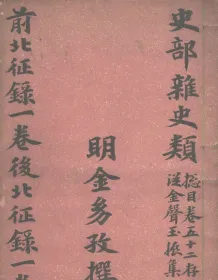 史部雜史類
總目卷五十二存
從金聲玉振集
明金㓜孜撰
前北征錄一卷後北征錄一